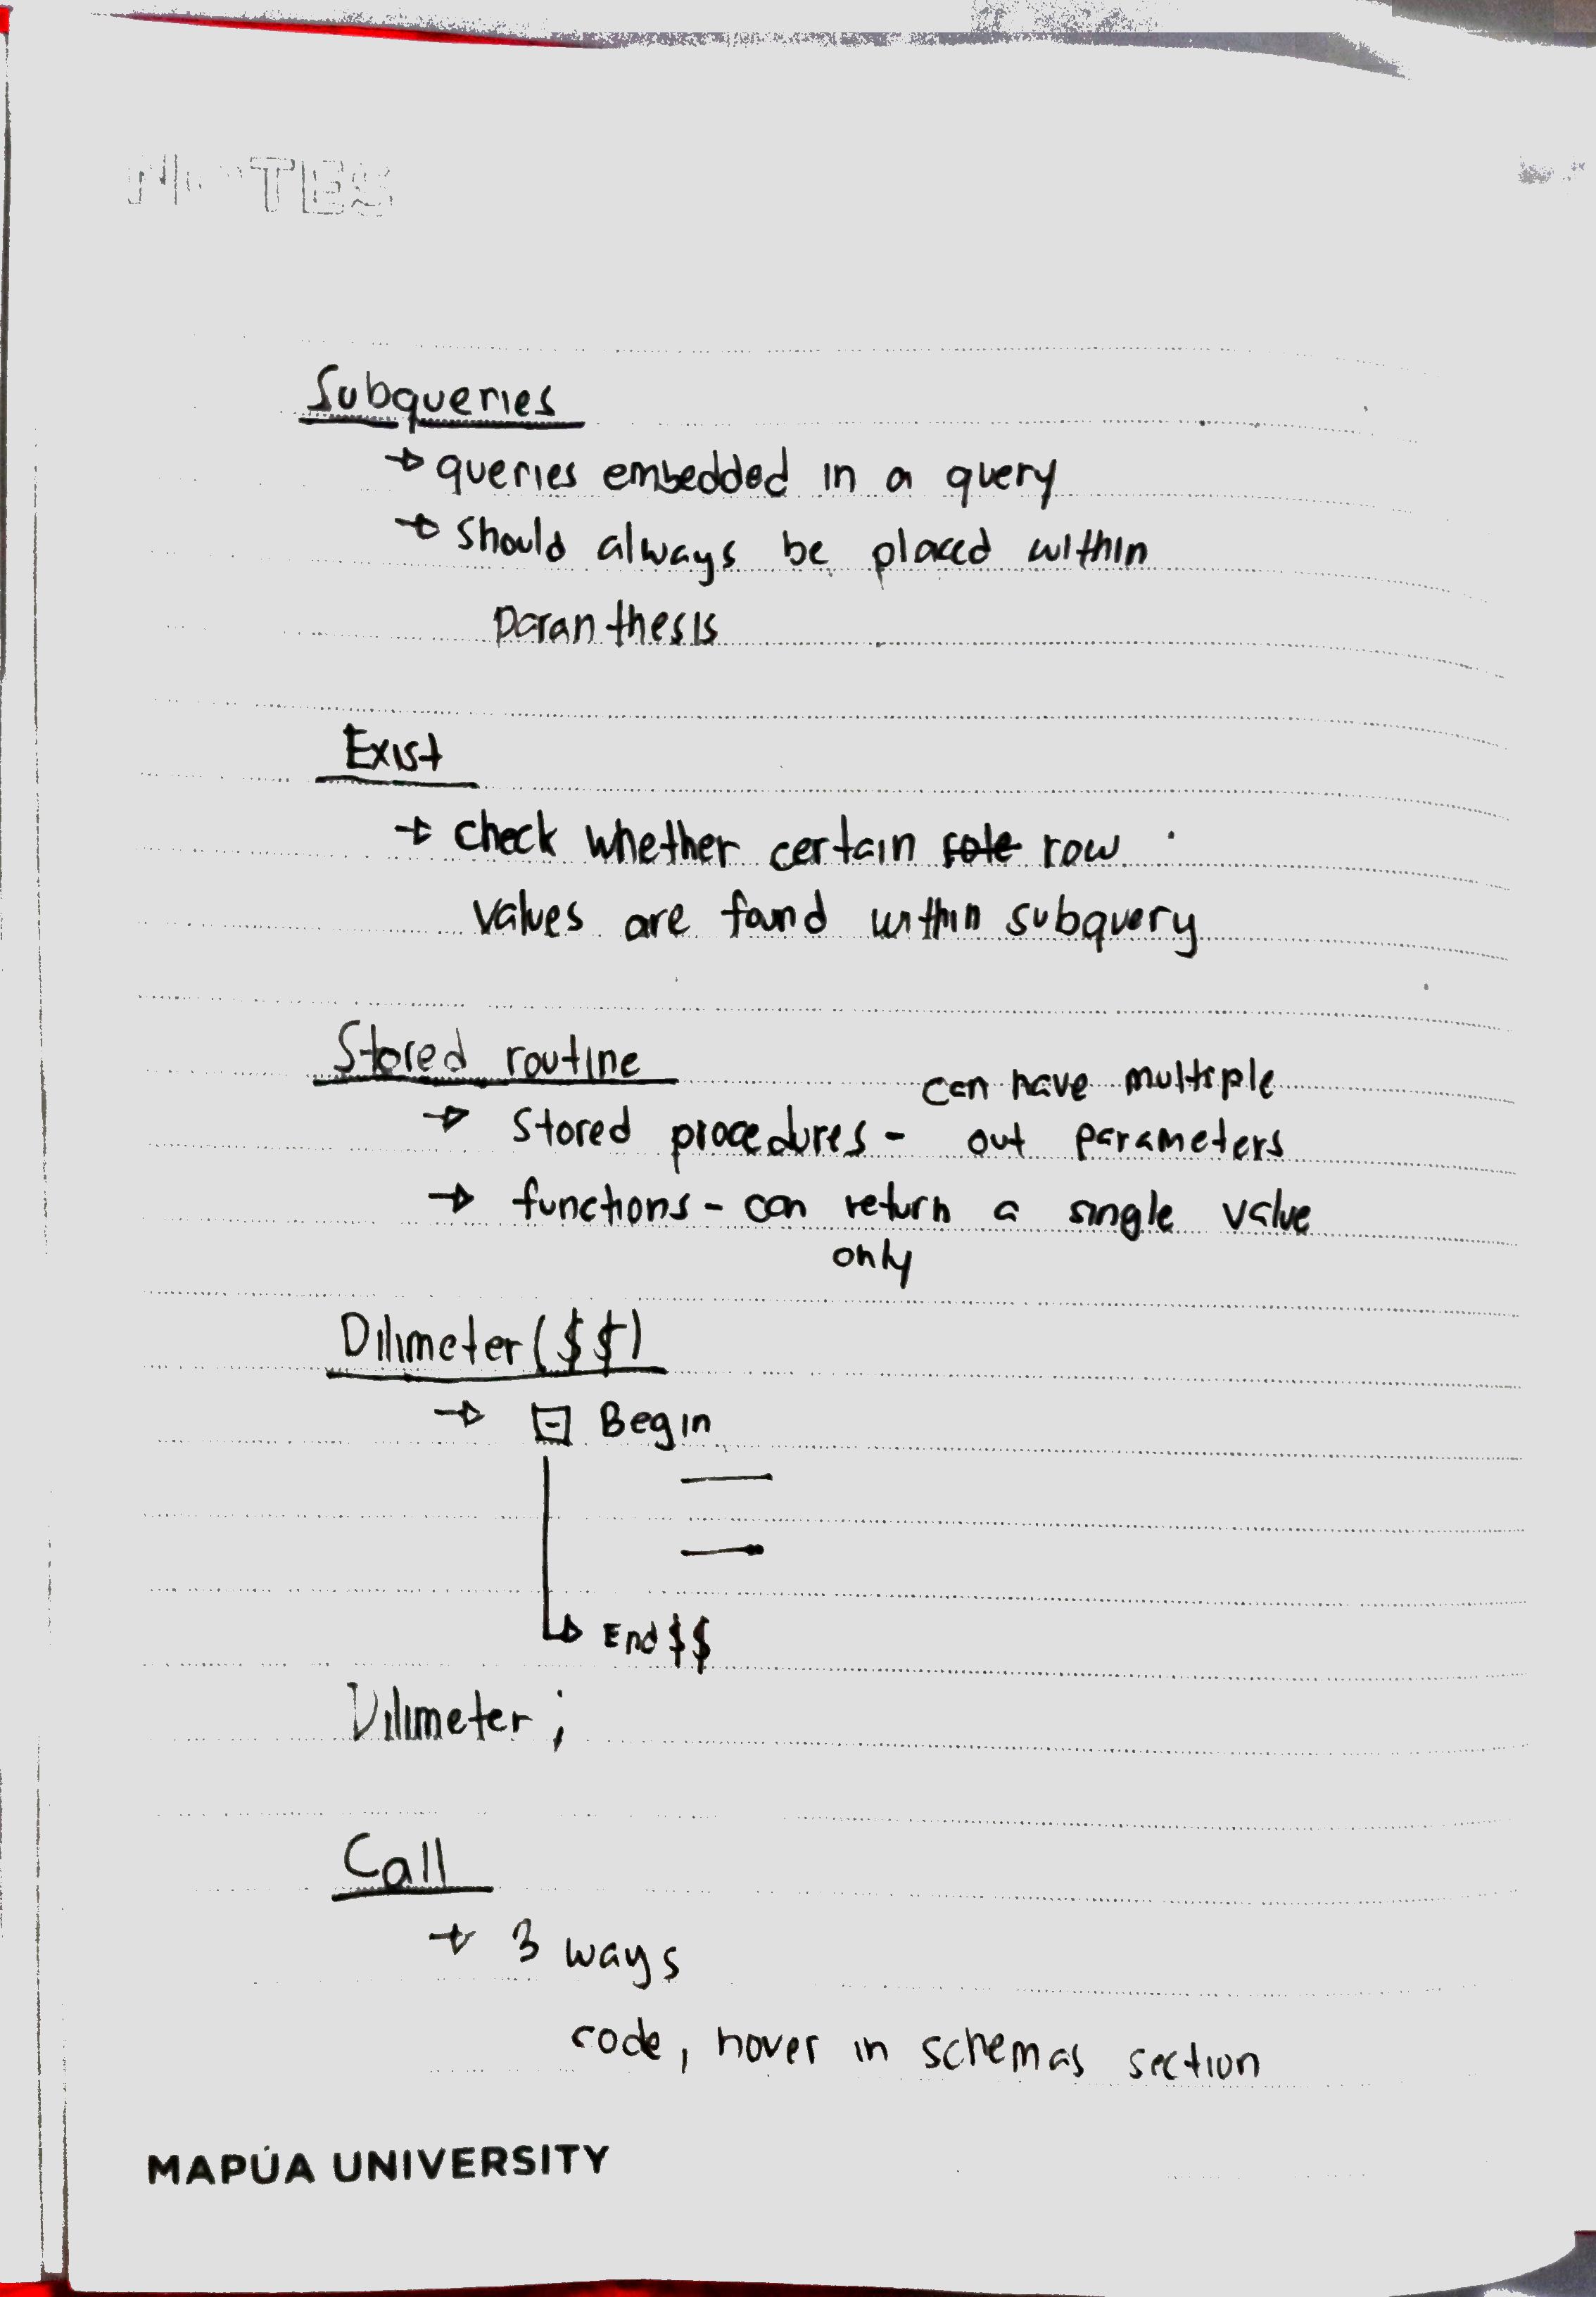 NOTES
Subqueries
→ queries embedded in a query
→ Should always be placed within
paranthesis
Exist
→ check whether certain row
values are found within subquery
Stored routine
can have multiple
→ Stored procedures - out parameters
→ functions - can return a single value
only
Dilimeter ($$)
→ Begin
End $$
Dilimeter ;
Call
→ 3 ways
code, hover in schemas section
MAPÚA UNIVERSITY